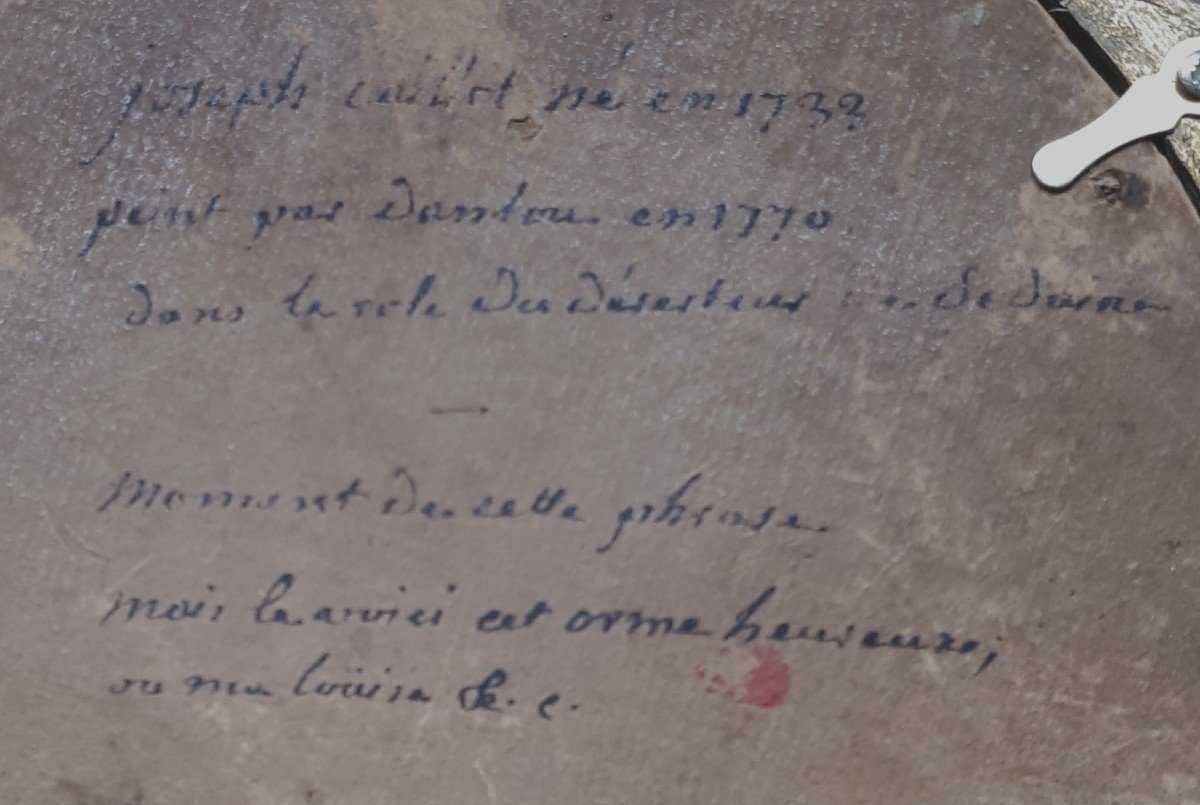 joseph caillot né en 1733
peint par danlou en 1770
dans le role du déserteur de Sedaine
—
moment de cette phrase
mais le voici cet orme heureuxe;
ou ma loüise &. c.